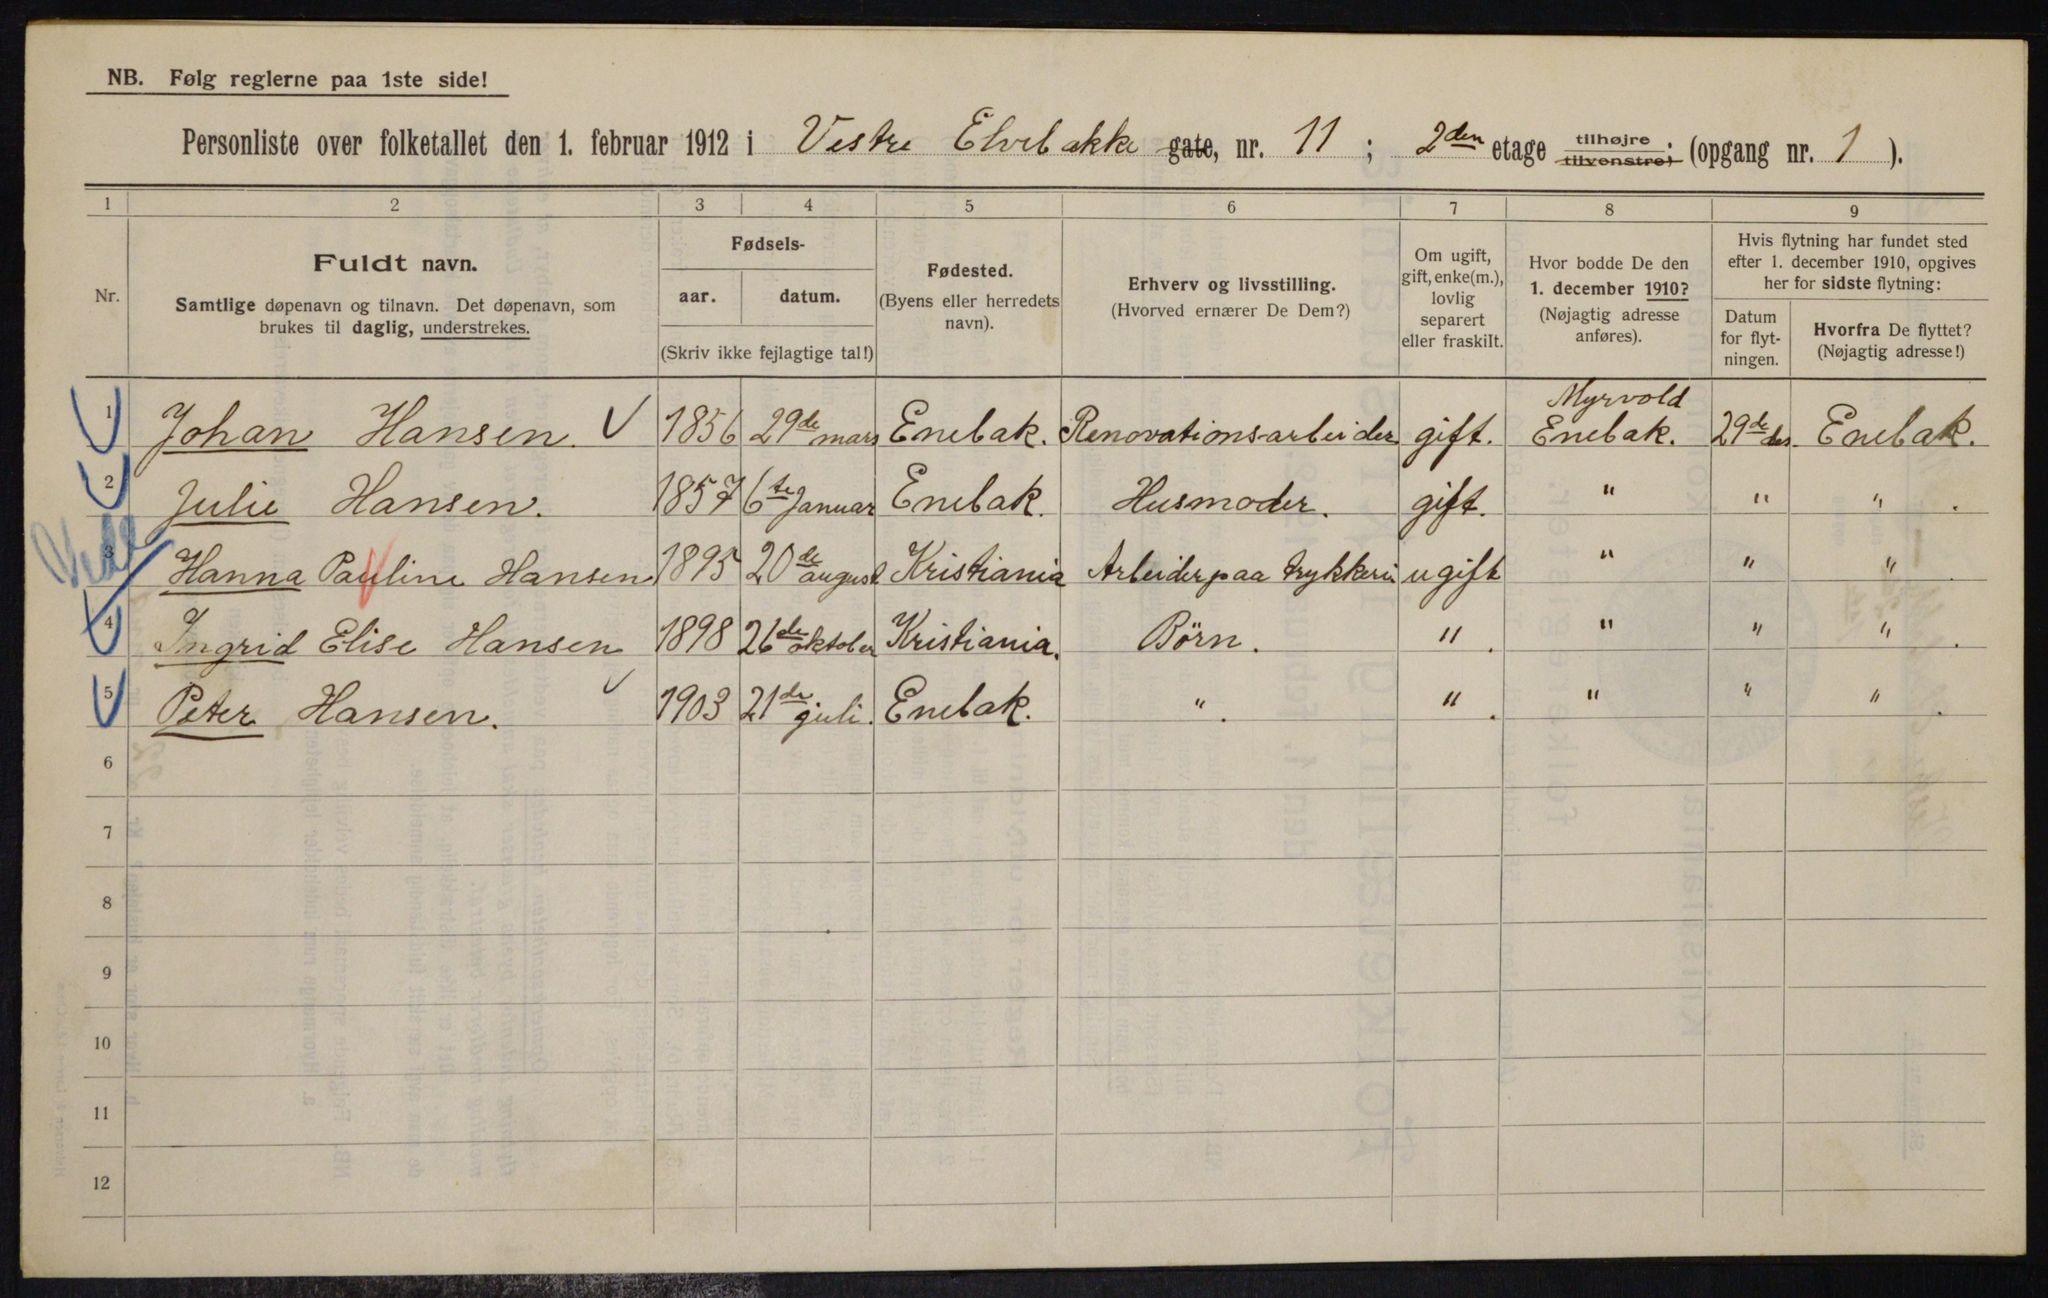 NB. Følg reglerne paa 1ste side!
Personliste over folketallet den 1. februar 1912 i Vestre Elvebakke gate, nr. 11 ; 2den etage tilhøjre tilvenstre) ; (opgang nr. 1 ).
1 2 3 4 5 6 7 8 9
Nr.
Fuldt navn.
Samtlige døpenavn og tilnavn. Det døpenavn, som
brukes til daglig, understrekes.
Fødsels-
aar. datum.
(Skriv ikke fejlagtige tal!)
Fødested.
(Byens eller herredets
navn).
Erhverv og livsstilling.
(Hvorved ernærer De Dem?)
Om ugift,
gift, enke(m.),
lovlig
separert
eller fraskilt.
Hvor bodde De den
1. december 1910?
(Nøjagtig adresse
anføres).
Hvis flytning har fundet sted
efter 1. december 1910, opgives
her for sidste flytning:
Datum
for flyt-
ningen.
Hvorfra De flyttet?
(Nøjagtig adresse!)
1 Johan Hansen. 1856 29de mars Enebak. Renovationsarbeider gift. Myrvold Enebak. 29de des. Enebak.
2 Julie Hansen. 1857 6te Januar Enebak. Husmoder. gift. " " " .
3 Hanna Pauline Hansen 1895 20de august Kristiania Arbeider paa trykkeri ugift " " " .
4 Ingrid Elise Hansen 1898 26de oktober Kristiania. Børn. " . " " " .
5 Peter Hansen. 1903 21de juli. Enebak. " . " . " " " .
6
7
8
9
10
11
12